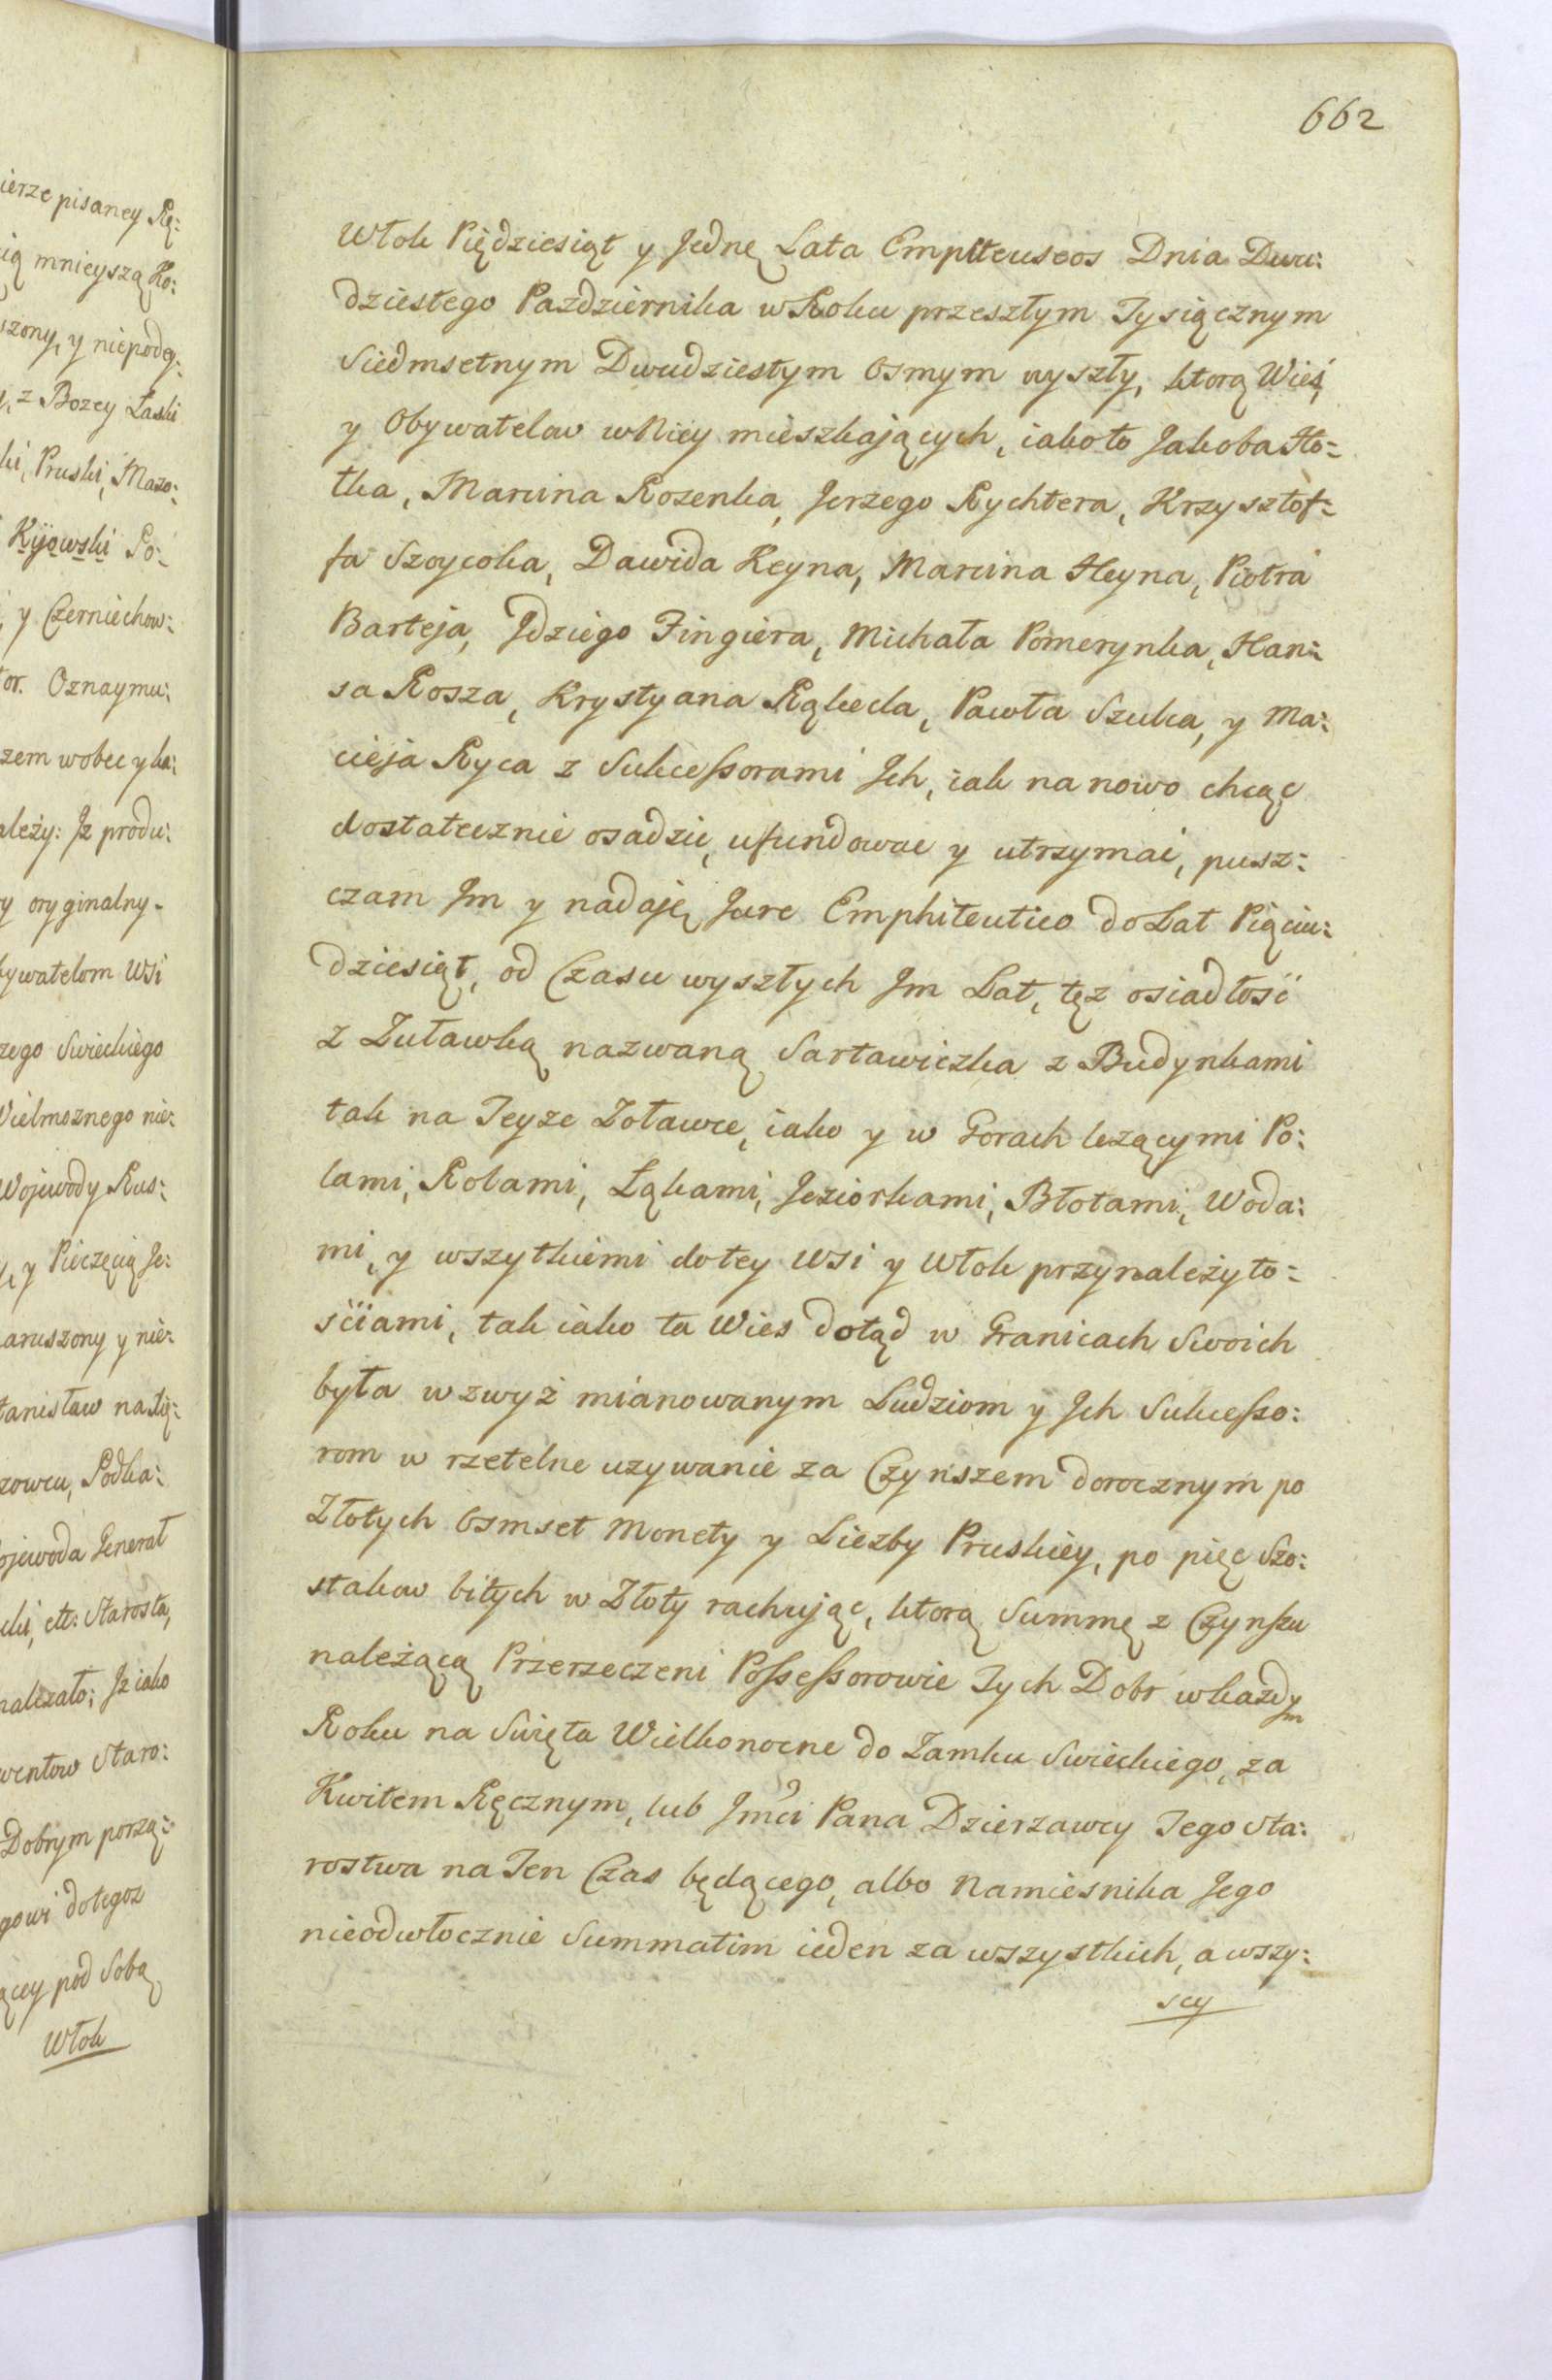 ierze pisaney Rę:
ią mnieyszą Ko:
szony, y niepode:
z Bozey Łaski
ki, Pruski, Mazo:
Kijowski Po:
y Czerniechow:
or. Oznaymu:
zem wobec y ka:
ależy: Jz produ:
y oryginalny
bywatelom Wsi
zego Swieckiego
Wielmoznego nie:
Wojewody Rus:
y Pieczęcią Je:
aruszony y nie:
tanisław na
zowcu, Podka:
ojewoda Generał
cki, etc: Starosta,
nalezało; Jz iako
wentow Staro:
Dobrym porzą:
gowi dotegoz
ącey pod Sobą
Włok
662
Włok Pięдziesiąt y Jednę Lata Empiteuseos Dnia Dwu:
dziestego Pazdziernika w Roku przeszłym Tysiącznym
Siedmsetnym Dwudziestym Osmym wyszły, ktorą Wieś
y Obywatelow w Niey mieszkaiących, iako to Jakoba Ho=
tka, Marcina Rozenka, Jerzego Rychtera, Krzysztof=
fa Szoycoka, Dawida Reyna, Marcina Heyna, Piotra
Barteja, Jdziego Fingiera, Michała Pomerynka, Han=
sa Rosza, Krystyana Rąkeda, Pawła Szulca, y Ma:
cieja Ryca z Sukcessorami Jch, iak na nowo chcąc
dostatecznie osadzic, ufundowac y utrzymac, pusz:
czam Jm y nadaję Jure Emphiteutico do Lat Pięciu:
dziesiąt, od Czasu wyszłych Jm Lat, tęz osiadłość
z Zuławką nazwaną Sartawiczka z Budynkami
tak na Teyze Zoławce, iako y w Gorach lezącymi Po:
lami, Rolami, Łąkami, Jeziorkami, Błotami, Woda:
mi, y wszytkiemi do tey Wsi y Włok przynależyto=
sciami, tak iako ta Wies dotąd w Granicach Swoich
była wzwyż mianowanym Ludziom y Jch Sukcesso:
rom w rzetelne uzywanie za Czynszem dorocznym po
Złotych Osmset Monety y Liczby Pruskiey, po pięc Szo:
stakow bitych w Złoty rachując, ktorą Summę z Czynszu
należącą Przerzeczeni Possessorowie Tych Dobr w kazdym
Roku na Swięta Wielkonocne do Zamku Swieckiego, za
Kwitem Ręcznym, lub Jmci Pana Dzierzawcy Tego Sta:
rostwa na Ten Czas będącego, albo Namiesnika Jego
nieodwłocznie Summatim ieden za wszystkich, a wszy:
scy